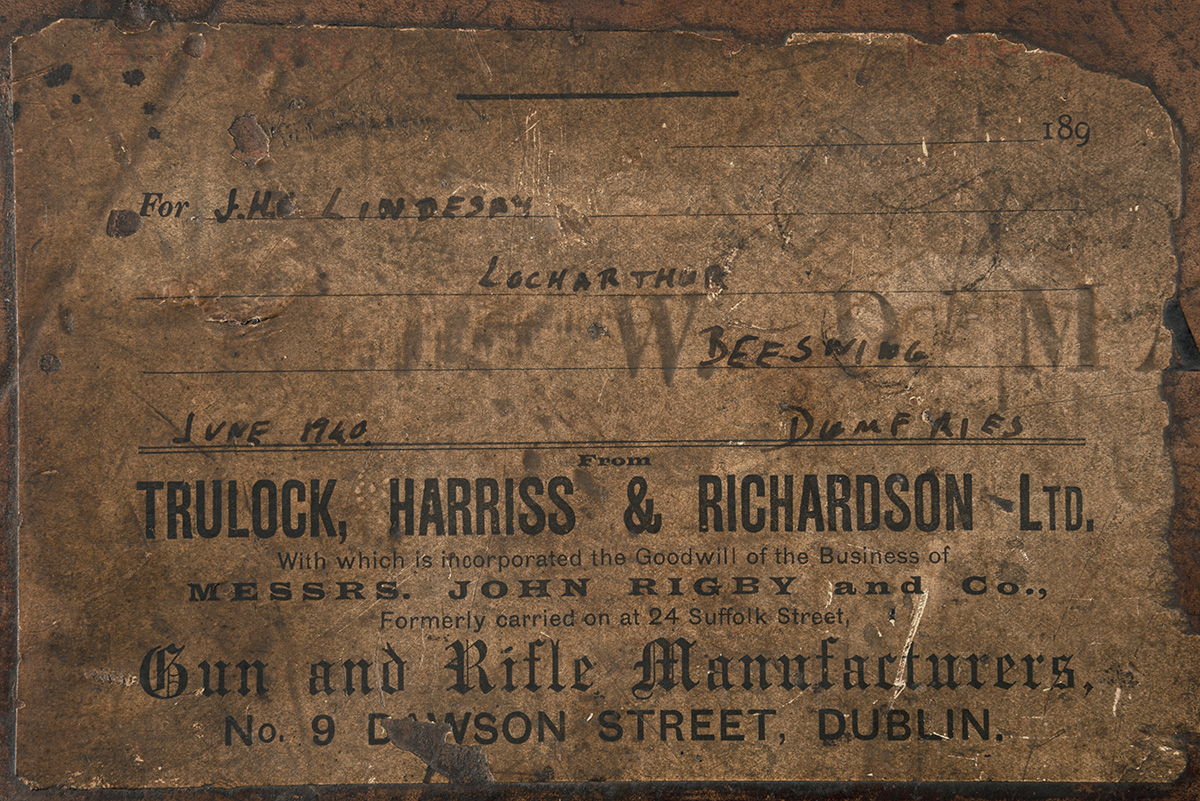 189
For J.H.C LINDESAY
LOCHARTHUR
BEESWING
JUNE 1940. DUMFRIES
From
TRULOCK, HARRISS & RICHARDSON LTD.
With which is incorporated the Goodwill of the Business of
MESSRS. JOHN RIGBY and Co.,
Formerly carried on at 24 Suffolk Street,
Gun and Rifle Manufacturers,
No. 9 DAWSON STREET, DUBLIN.